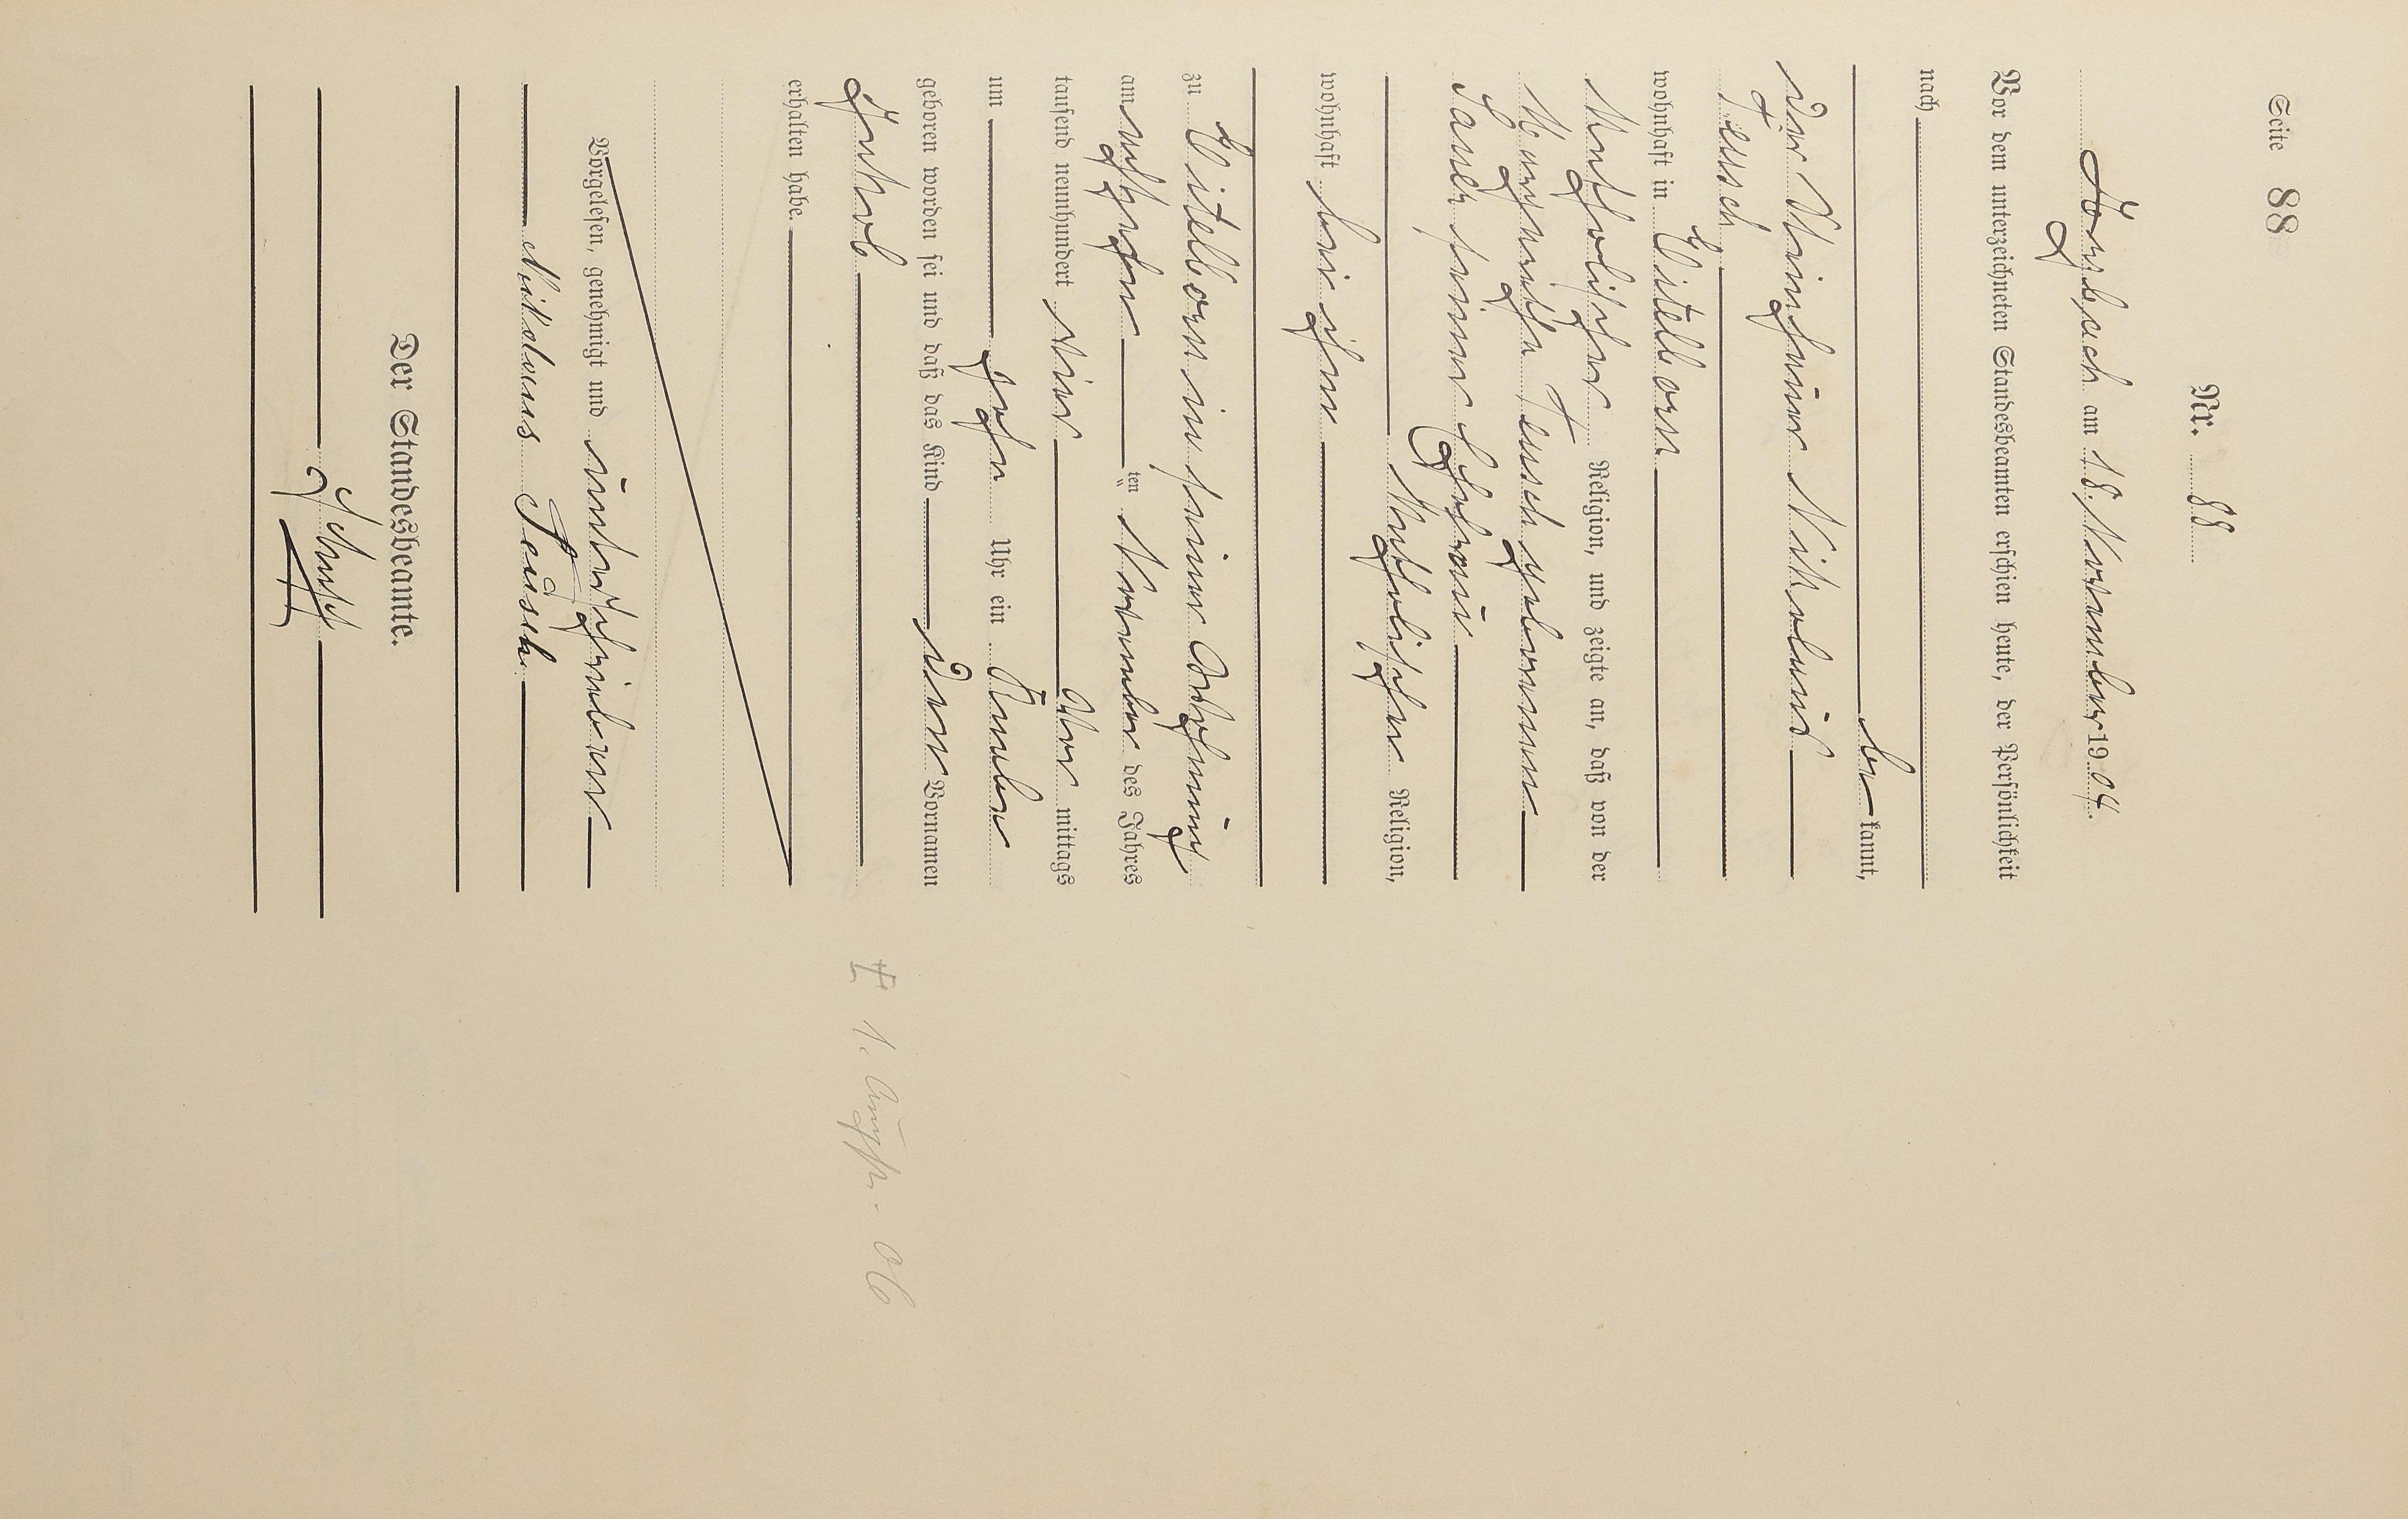 Seite 88
Nr. 88
Arzbach am 18. November 1904.
Vor dem unterzeichneten Standesbeamten erschien heute, der Persönlichkeit
nach
be kannt,
der Steinhauer Nikolaus
Teusch
wohnhaft in Eitelborn
katholischer Religion, und zeigte an, daß von der
Margaretha Teusch geborenen
Sauer seiner Ehefrau
katholischer Religion,
wohnhaft bei ihm
zu Eitelborn in seiner Wohnung
am achtzehn ten November des Jahres
tausend neunhundert vier Vor mittags
um zehn Uhr ein Knabe
geboren worden sei und daß das Kind den Vornamen
Jakob
erhalten habe.
Vorgelesen, genehmigt und unterschrieben
Nikolaus Teusch
Der Standesbeamte.
Schupp
† 1. August 06